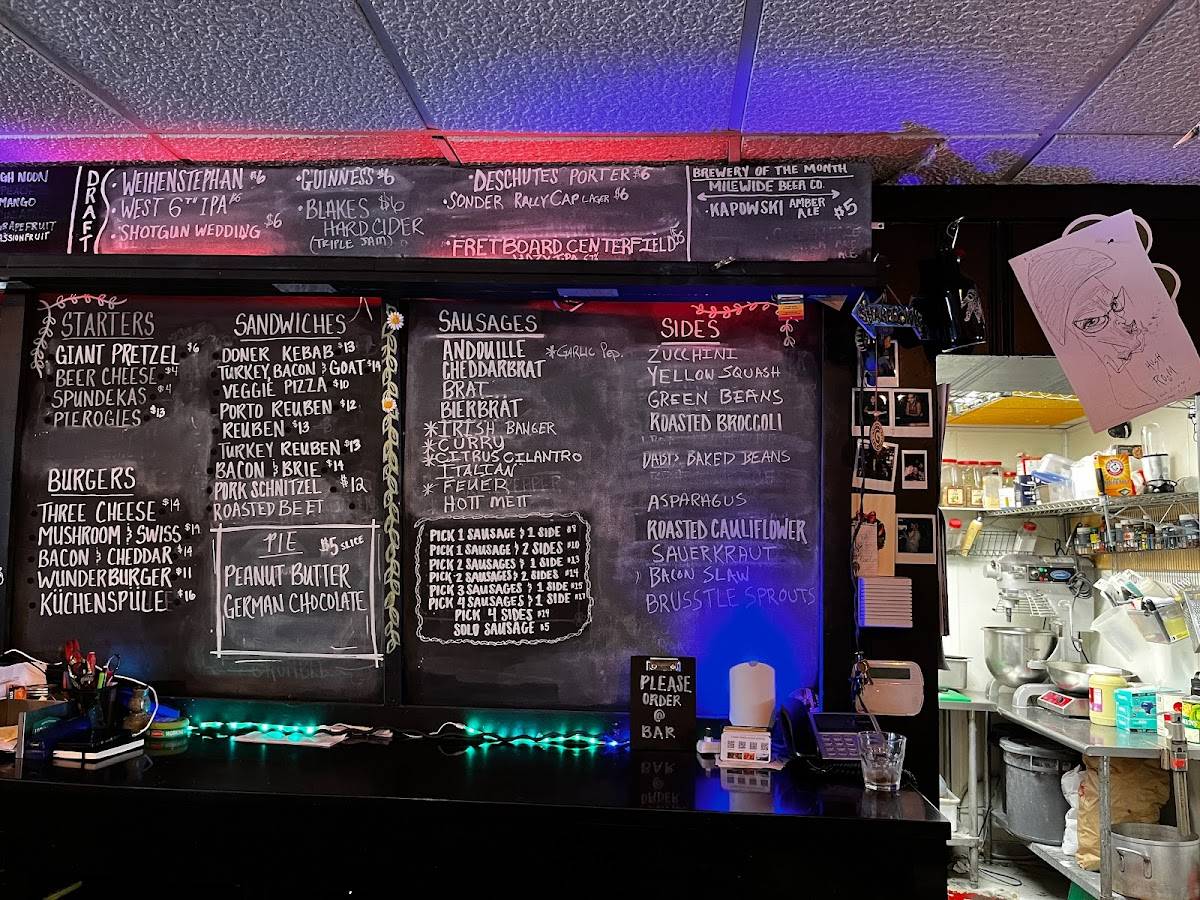 GH NOON
PEACH
MANGO
GRAPEFRUIT
PASSIONFRUIT
DRAFT
· WEIHENSTEPHAN $6
· WEST 6TH IPA $6
· SHOTGUN WEDDING $6
· GUINNESS $6
· BLAKES $6
HARD CIDER
(TRIPLE JAM)
· DESCHUTES PORTER $6
· SONDER RALLY CAP LAGER $6
· FRETBOARD CENTERFIELD $5
BREWERY OF THE MONTH
MILEWIDE BEER CO.
· KAPOWSKI AMBER ALE $5
STARTERS
GIANT PRETZEL $6
BEER CHEESE $4
SPUNDEKAS $4
PIEROGIES $13
BURGERS
THREE CHEESE $14
MUSHROOM & SWISS $14
BACON & CHEDDAR $14
WUNDERBURGER $11
KÜCHENSPÜLE $16
SANDWICHES
DONER KEBAB $13
TURKEY, BACON & GOAT $14
VEGGIE PIZZA $10
PORTO REUBEN $12
REUBEN $13
TURKEY REUBEN $13
BACON & BRIE $14
PORK SCHNITZEL $12
ROASTED BEET
PIE $5 SLICE
PEANUT BUTTER
GERMAN CHOCOLATE
SAUSAGES
ANDOUILLE *GARLIC PEP.
CHEDDARBRAT
BRAT
BIERBRAT
*IRISH BANGER
*CURRY
*CITRUS CILANTRO
ITALIAN
* FEUER
HOTT METT
PICK 1 SAUSAGE & 1 SIDE $9
PICK 1 SAUSAGE & 2 SIDES $10
PICK 2 SAUSAGES & 1 SIDE $13
PICK 2 SAUSAGES & 2 SIDES $14
PICK 3 SAUSAGES & 1 SIDE $15
PICK 4 SAUSAGES & 1 SIDE $17
PICK 4 SIDES $14
SOLO SAUSAGE $5
SIDES
ZUCCHINI
YELLOW SQUASH
GREEN BEANS
ROASTED BROCCOLI
DADI'S BAKED BEANS
ASPARAGUS
ROASTED CAULIFLOWER
SAUERKRAUT
BACON SLAW
BRUSSTLE SPROUTS
PLEASE
ORDER
@
BAR